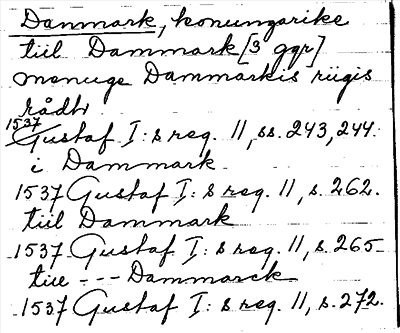 Danmark, konungarike
tiil Dammark [3 ggr]
menuge Dammarkis riigis
rådh
1537 Gustaf I:s reg. 11, ss. 243, 244.
i Dammark
1537 Gustaf I:s reg. 11, s. 262.
tiil Dammark
1537 Gustaf I:s reg. 11, s. 265
tiil --- Dammarck
1537 Gustaf I:s reg. 11, s. 272.